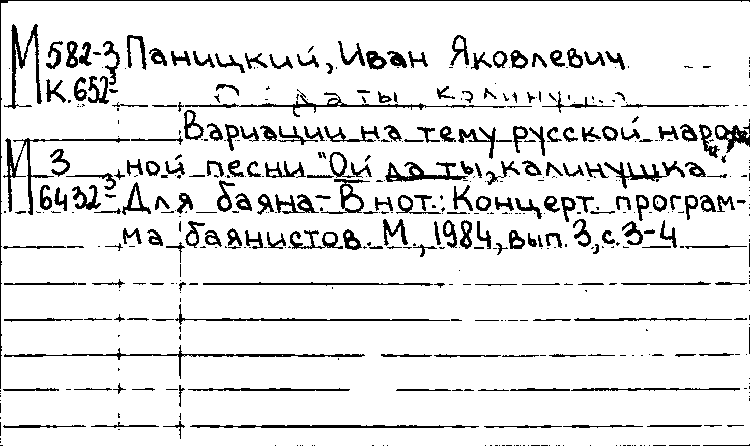 М 582-3 Паницкий, Иван Яковлевич
К.652³
Ой да ты, калинушка
Вариации на тему русской народ-
М 3 ной песни "Ой да ты, калинушка".
6432³ Для баяна.- В нот.: Концерт. програм-
ма баянистов. М., 1984, вып.3, с.3-4